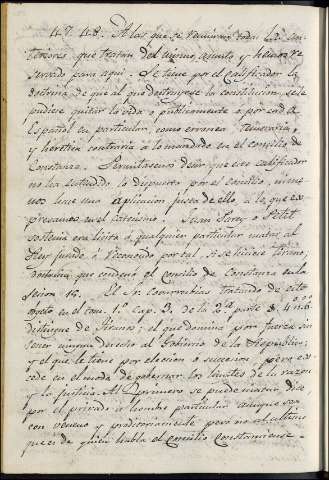 47. 48. A las que se reunirán todas las an-
teriores que tratan del mismo asunto, y hemos re
servado para aqui. Se tiene por el calificador la
doctrina de que al que destruyese la constitucion, se le
pudiese quitar la vida o publicamente o por cada
Español en particular, como erronea, temeraria,
y heretica contraria a lo mandado en el concilio de
Constanza. Permitasenos decir que este calificador
no ha entendido lo dispuesto por el concilio, ni me-
nos hace una aplicacion justa de ello, a lo que ex-
presamos en el catecismo. Juan Parvy o Petit
sostenia era licito a qualquier particular matar al
Rey fuese o reconocido por tal, si se hiciese tirano,
doctrina que condenó el concilio de Constanza en la
Sesion 15. El Sr. Covarrubias tratando de este
en el tom. 1.º Cap. 3. de la 2.ª parte § 4 n.º
distingue de tiranos: el que domina por fuerza sin
tener ninguno derecho al Gobierno de la Republica;
y el que le tiene por eleccion o sucesion pero ex-
cede en el modo de gobernar los limites de la razon
y la Justicia. Al primero se puede matar, dice
por el privado u hombre particular aunque sea
con veneno y proditoriamente pero no al ultimo
que es de quien habla el concilio Constanciense.